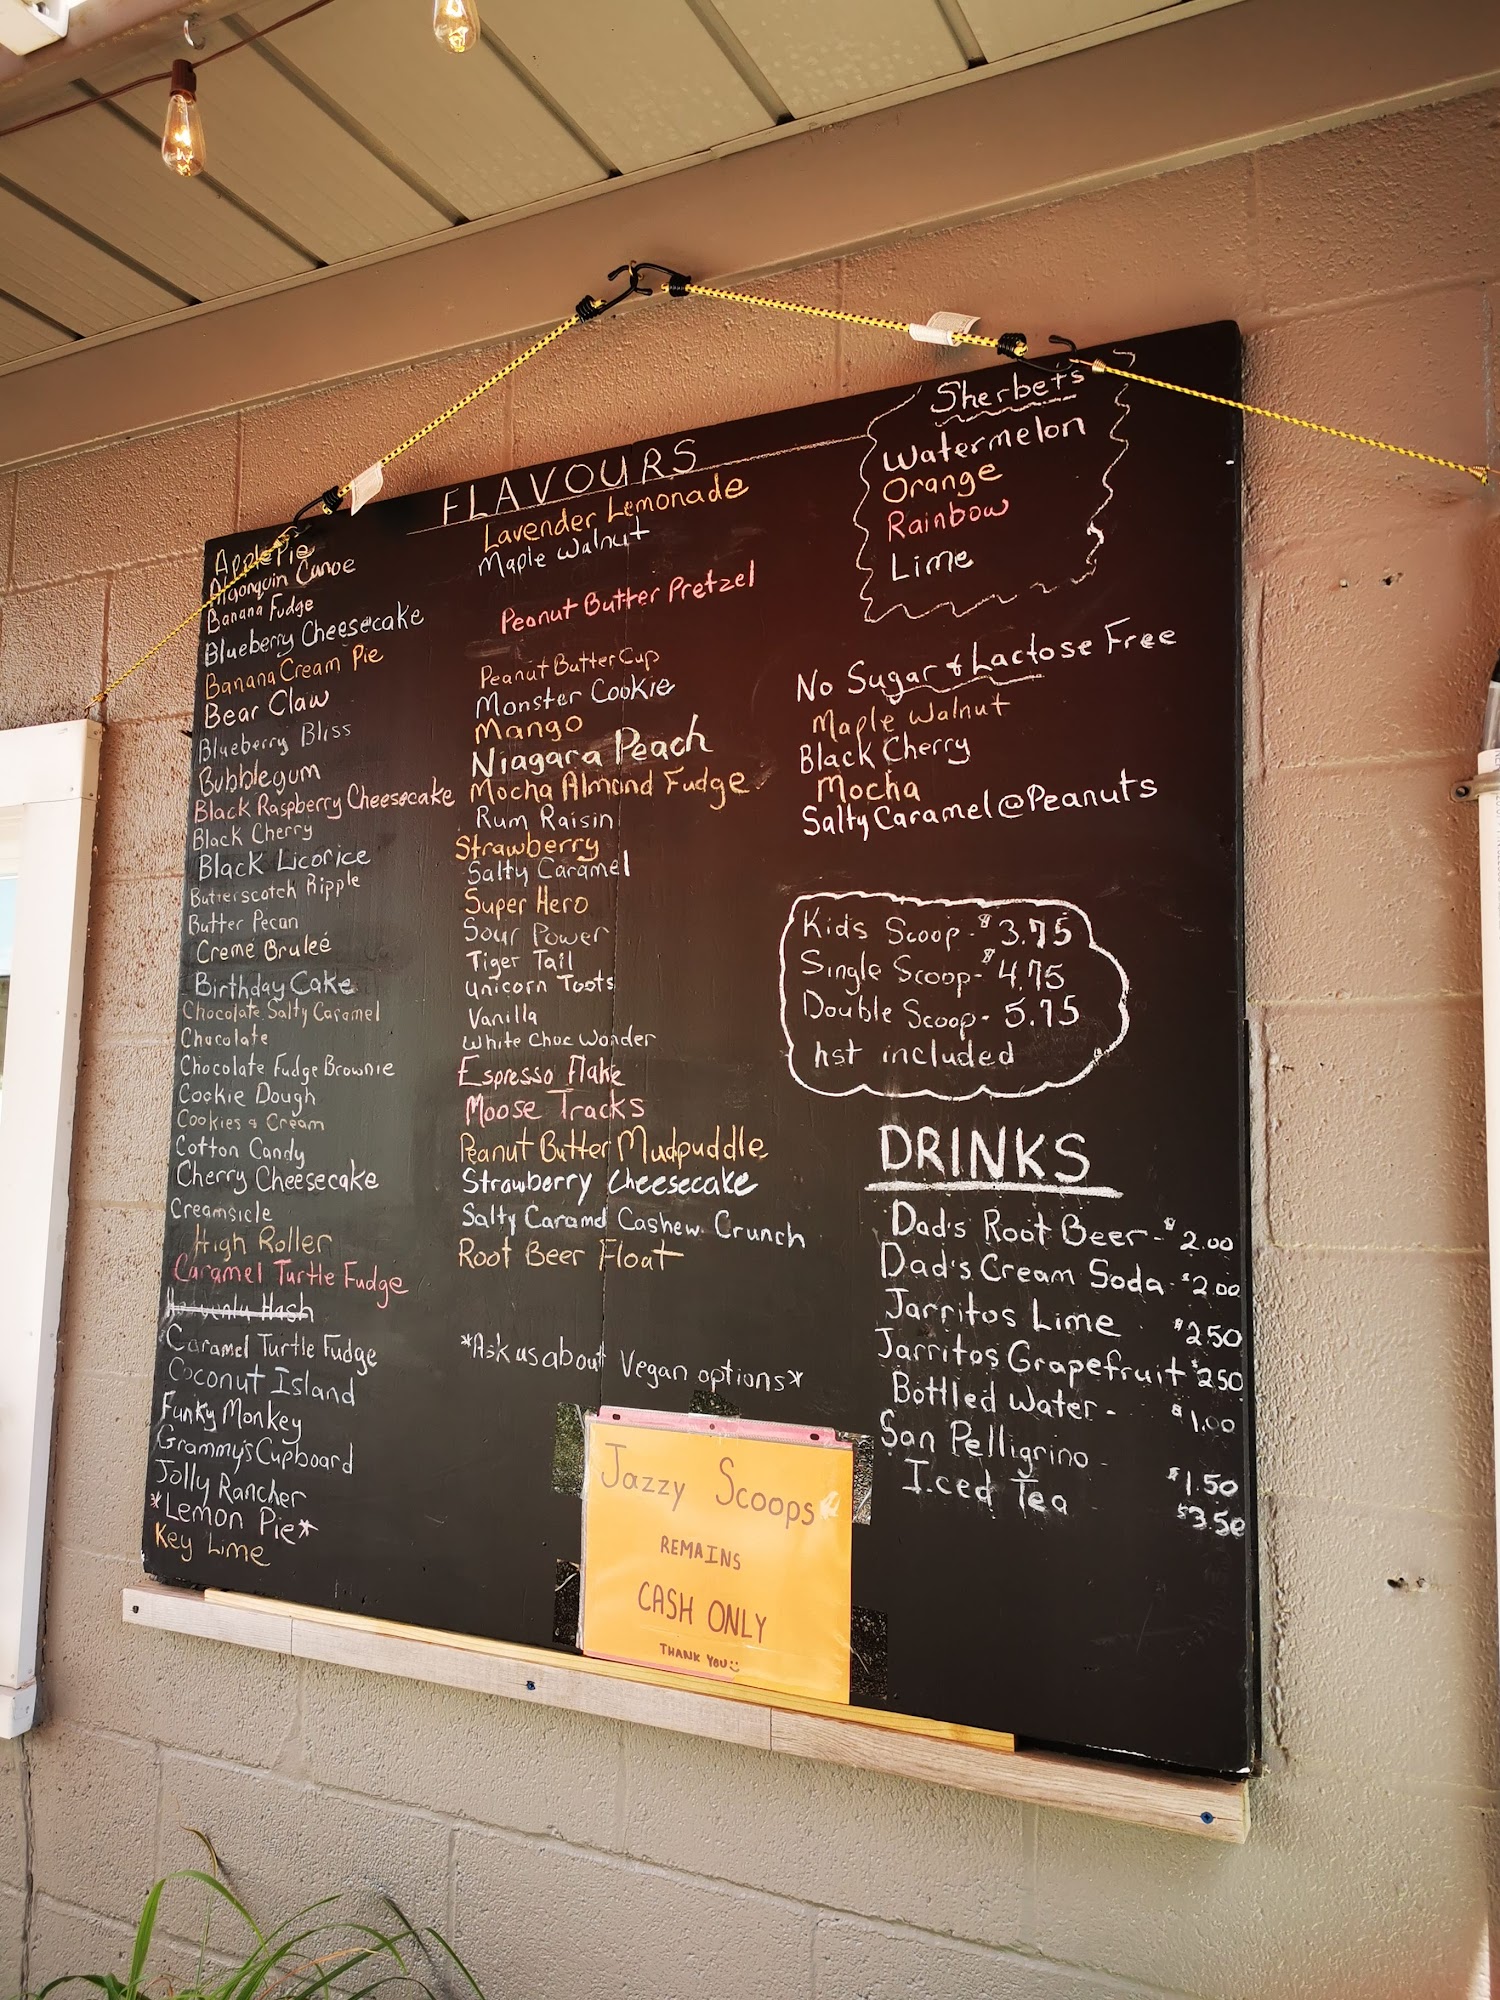 FLAVOURS
Apple Pie
Algonquin Canoe
Banana Fudge
Blueberry Cheesecake
Banana Cream Pie
Bear Claw
Blueberry Bliss
Bubblegum
Black Raspberry Cheesecake
Black Cherry
Black Licorice
Butterscotch Ripple
Butter Pecan
Creme Bruleé
Birthday Cake
Chocolate Salty Caramel
Chocolate
Chocolate Fudge Brownie
Cookie Dough
Cookies & Cream
Cotton Candy
Cherry Cheesecake
Creamsicle
High Roller
Caramel Turtle Fudge
Hash
Caramel Turtle Fudge
Coconut Island
Funky Monkey
Grammy's Cupboard
Jolly Rancher
*Lemon Pie*
Key Lime
Lavender Lemonade
Maple Walnut
Peanut Butter Pretzel
Peanut Butter Cup
Monster Cookie
Mango
Niagara Peach
Mocha Almond Fudge
Rum Raisin
Strawberry
Salty Caramel
Super Hero
Sour Power
Tiger Tail
Unicorn Toots
Vanilla
White Choc Wonder
Espresso Flake
Moose Tracks
Peanut Butter Mudpuddle
Strawberry Cheesecake
Salty Caramel Cashew Crunch
Root Beer Float
*Ask us about Vegan options*
Sherbets
Watermelon
Orange
Rainbow
Lime
No Sugar & Lactose Free
Maple Walnut
Black Cherry
Mocha
Salty Caramel @ Peanuts
Kids Scoop - $3.75
Single Scoop - $4.75
Double Scoop - 5.75
hst included
DRINKS
Dad's Root Beer - $2.00
Dad's Cream Soda - $2.00
Jarritos Lime $2.50
Jarritos Grapefruit $2.50
Bottled Water - $1.00
San Pelligrino - $1.50
Iced Tea - $3.50
Jazzy Scoops
REMAINS
CASH ONLY
THANK YOU